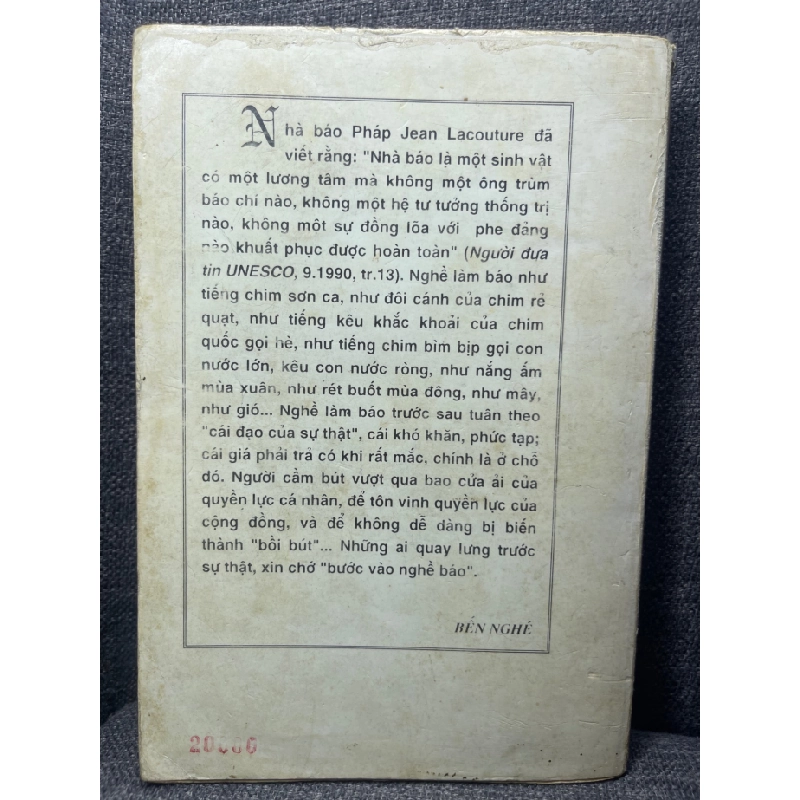 Nhà báo Pháp Jean Lacouture đã
viết rằng: "Nhà báo là một sinh vật
có một lương tâm mà không một ông trùm
báo chí nào, không một hệ tư tưởng thống trị
nào, không môt sự đồng lõa với phe đảng
nào khuất phục được hoàn toàn" (Người đưa
tin UNESCO, 9.1990, tr.13). Nghề làm báo như
tiếng chim sơn ca, như đôi cánh của chim rẻ
quạt, như tiếng kêu khắc khoải của chim
quốc gọi hè, như tiếng chim bìm bịp gọi con
nước lớn, kêu con nước ròng, như nắng ấm
mùa xuân, như rét buốt mùa đông, như mây,
như gió... Nghề làm báo trước sau tuân theo
"cái đạo của sự thật", cái khó khăn, phức tạp;
cái giá phải trả có khi rất mắc, chính là ở chỗ
đó. Người cầm bút vượt qua bao cửa ải của
quyền lực cá nhân, để tôn vinh quyền lực của
cộng đồng, và để không dễ dàng bị biến
thành "bồi bút"... Những ai quay lưng trước
sự thật, xin chớ "bước vào nghề báo".
BẾN NGHÉ